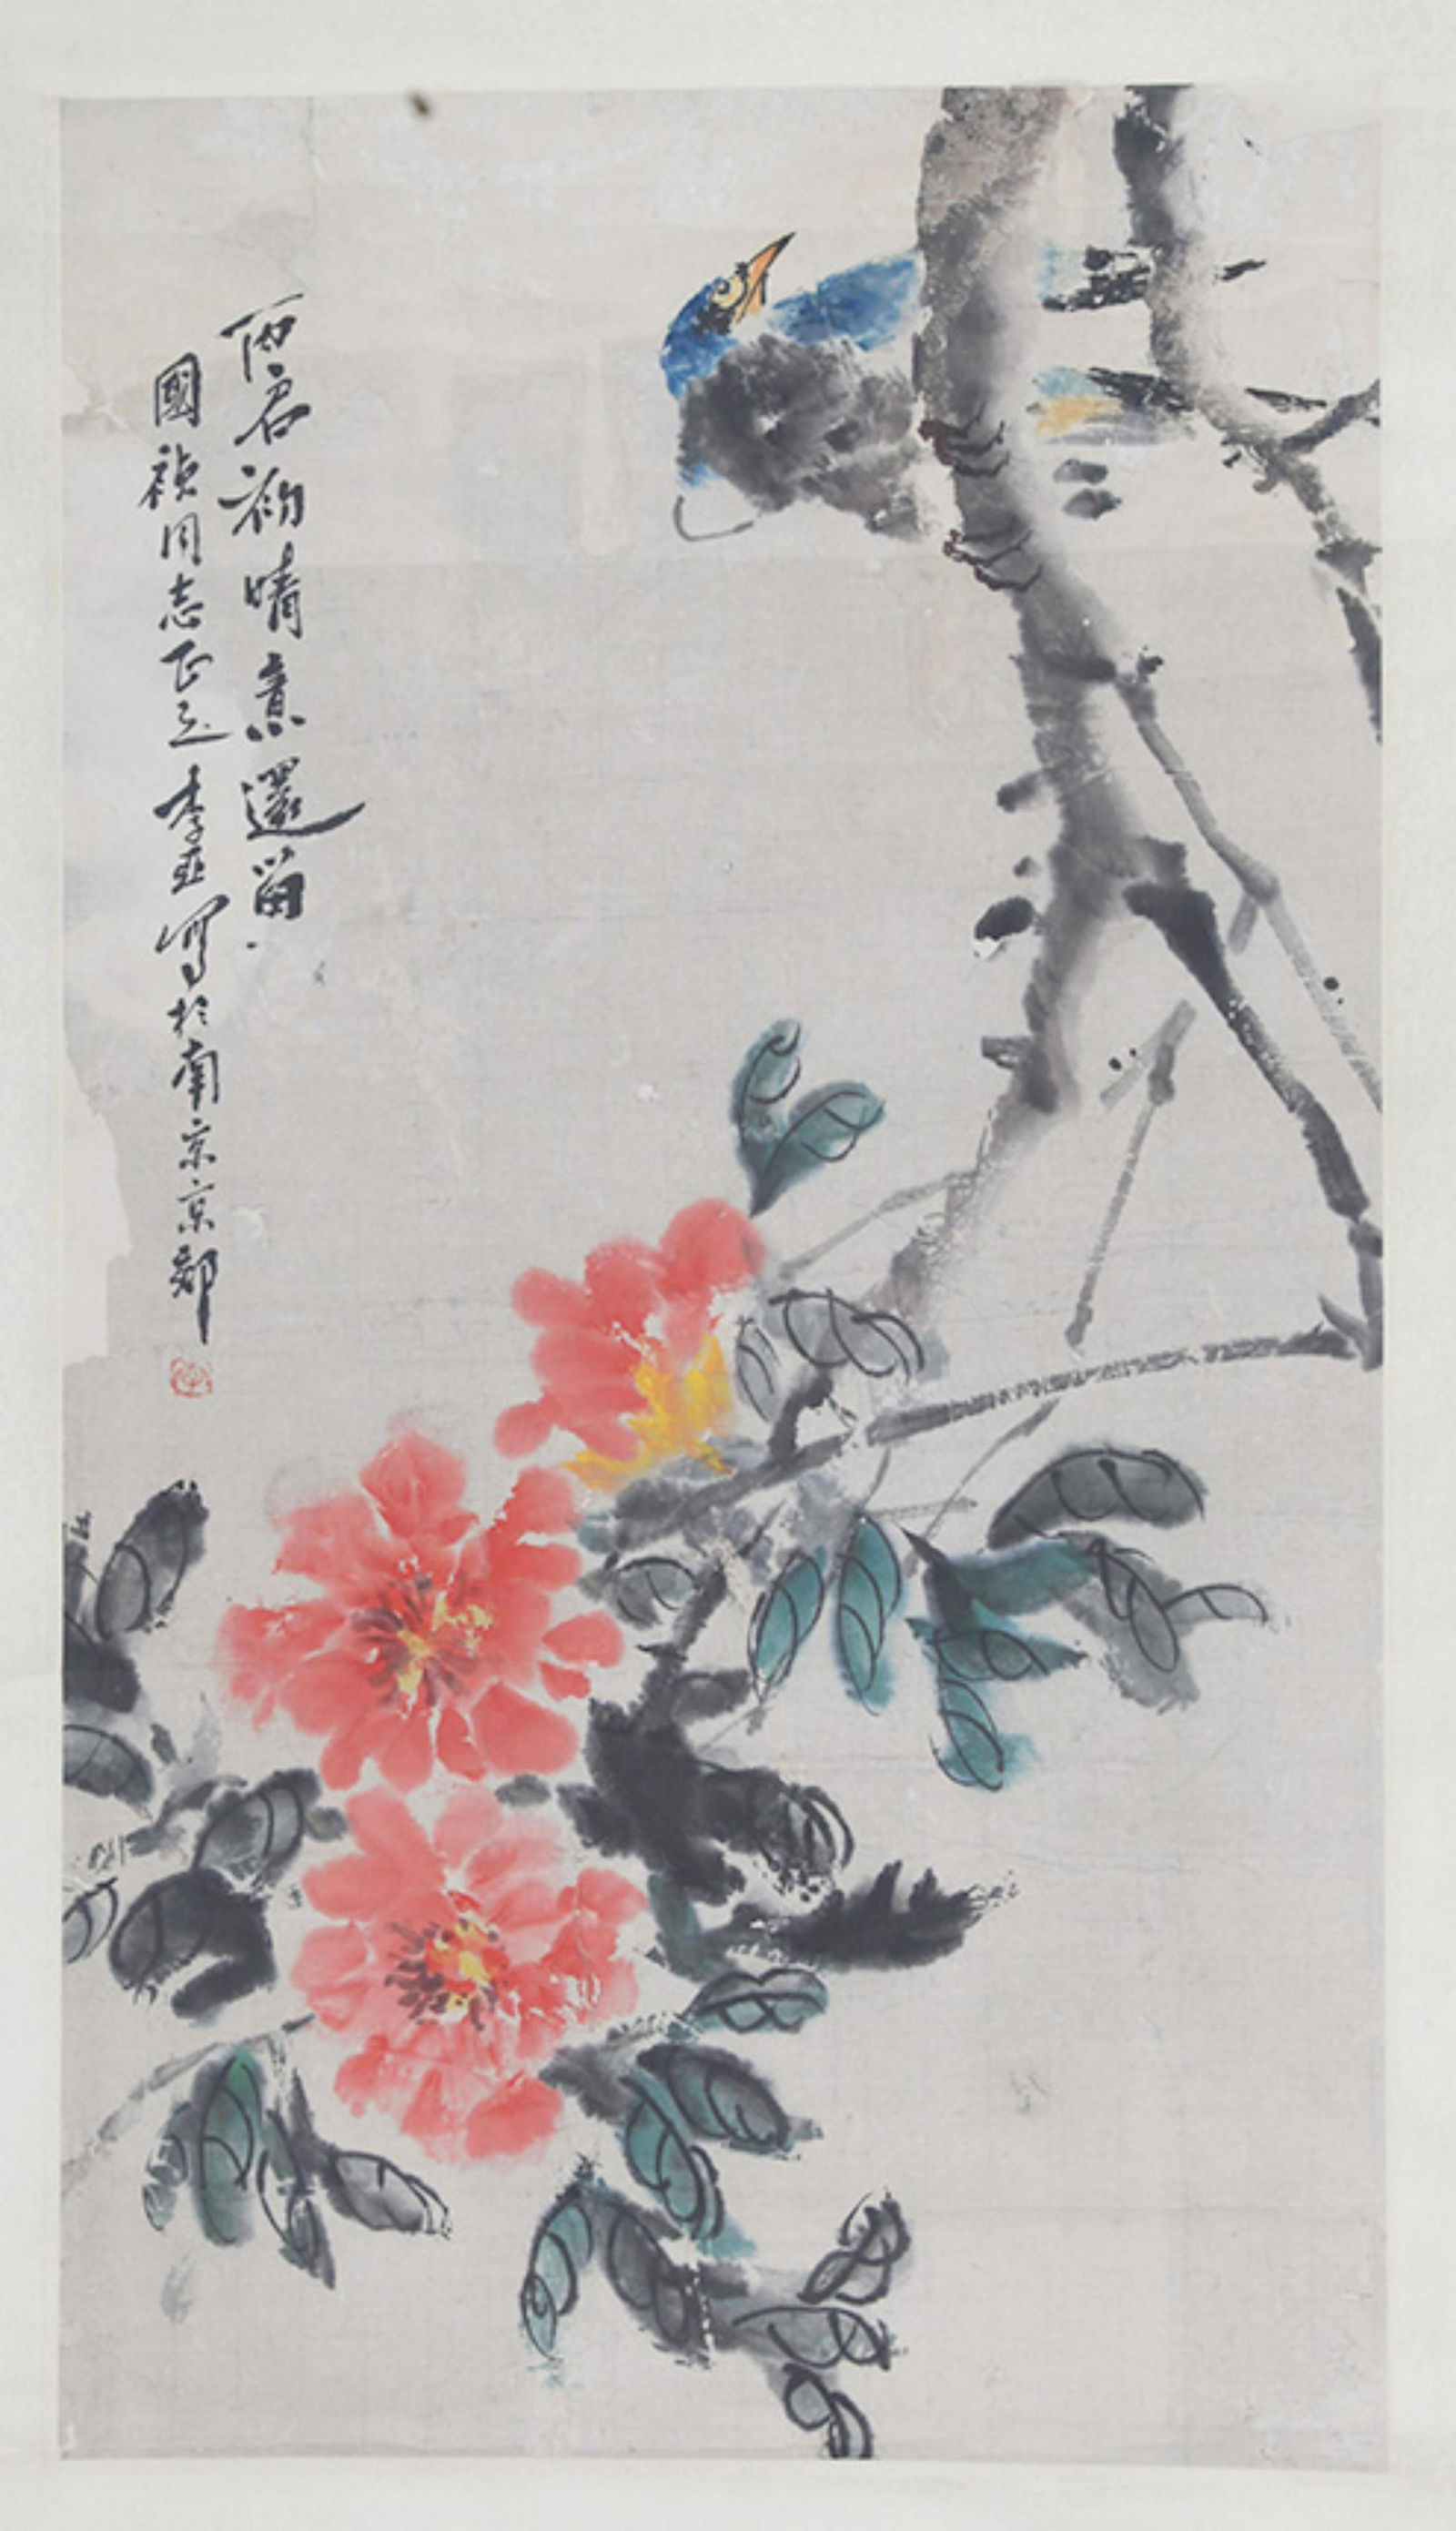 雨后初晴意還留
國禎同志正之 李亚寫於南京京郊